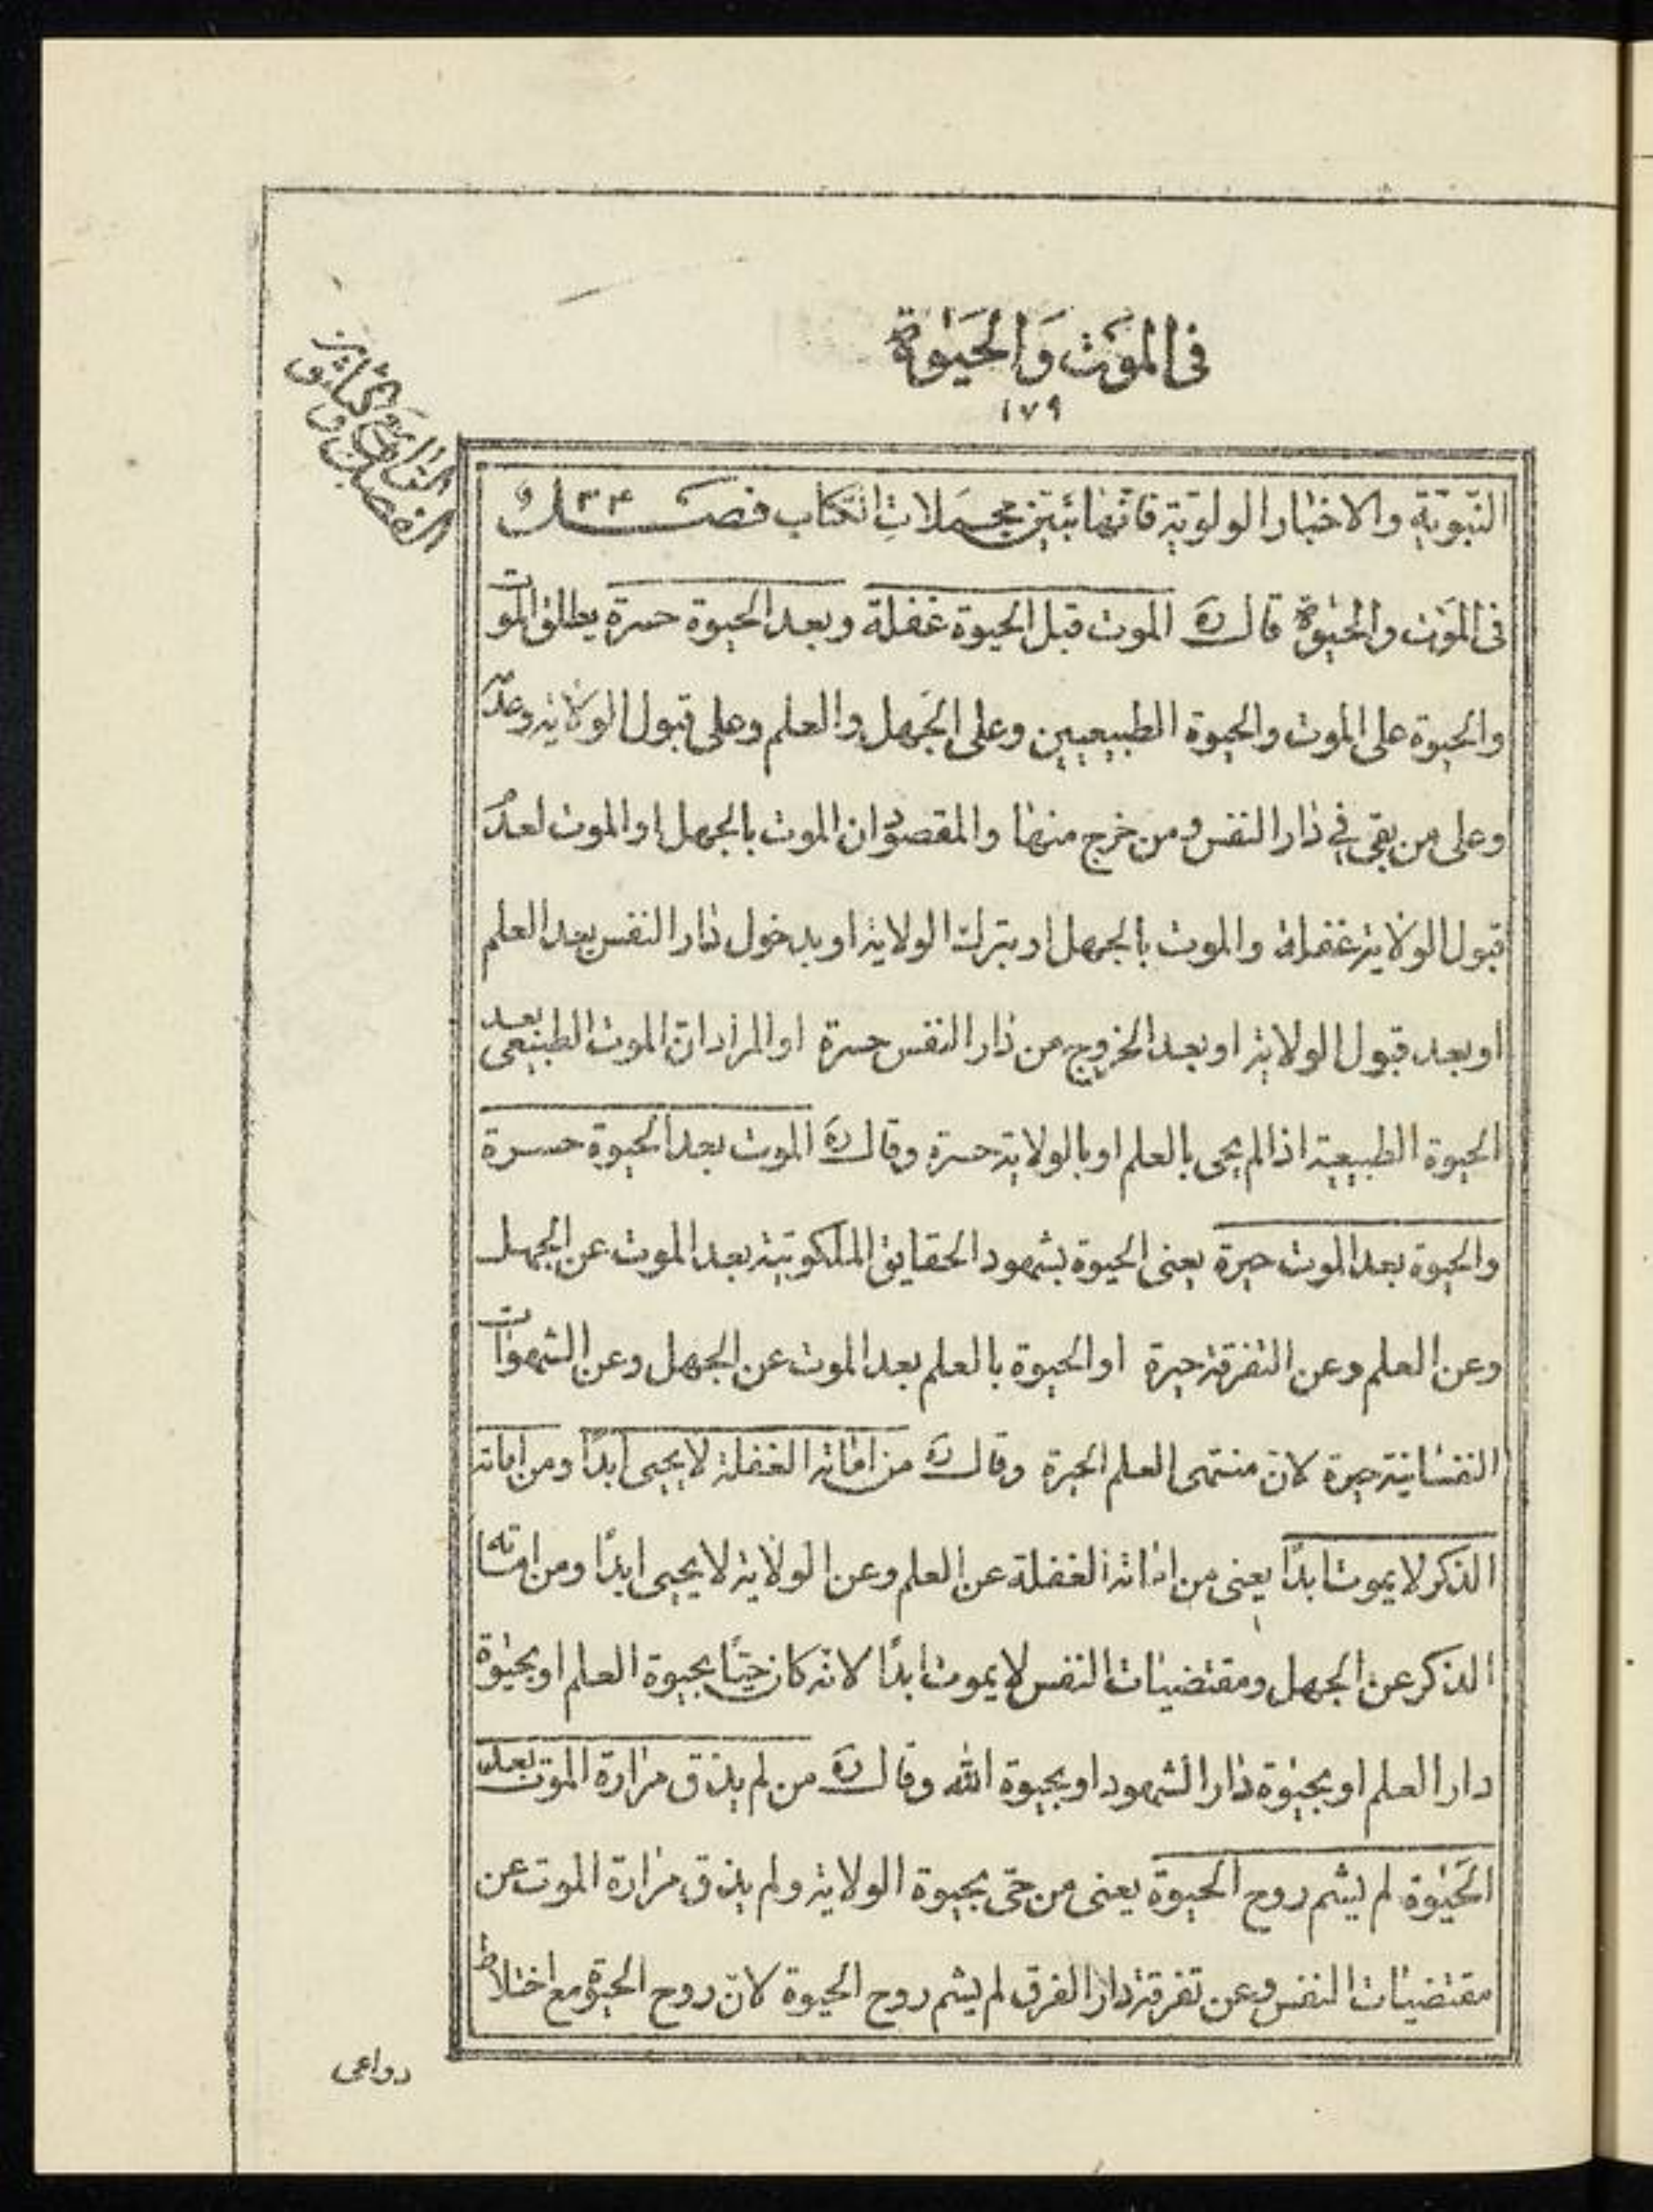 فی الموَت وَالحَیٰوة
۱۷۹
الفصل الرابع والثلاثون
النّبویّة والاخبار الولویّة فانّها تبیّن مجملات الکتاب فصل ۳۴ و
فی الموَت والحیٰوة قال ره الموت قبل الحیوة غفلة وبعد الحیوة حسرة یطلق الموت
والحیوة علی الموت والحیوة الطبیعیین وعلی الجهل والعلم وعلی قبول الولایة وعدمه
وعلی من بقی فی دار النفس ومن خرج منها والمقصود ان الموت بالجهل او الموت لعدم
قبول الولایة غفلة والموت بالجهل او بترک الولایة او بدخول دار النفس بعد العلم
او بعد قبول الولایة او بعد الخروج من دار النفس حسرة او المراد انّ الموت الطبیعی بعد
الحیوة الطبیعیة اذا لم یحی بالعلم او بالولایة حسرة وقال ره الموت بعد الحیوة حسرة
والحیوة بعد الموت حیرة یعنی الحیوة بشهود الحقایق الملکوتیة بعد الموت عن الجهل
وعن العلم وعن التفرقة حیرة او الحیوة بالعلم بعد الموت عن الجهل وعن الشهوات
النفسانیة حیرة لانّ منتهی العلم الحیرة وقال ره من اماته الغفلة لا یحیی ابدًا ومن اماته
الذکر لا یموت ابدًا یعنی من اماته الغفلة عن العلم وعن الولایة لا یحیی ابدًا ومن اماته
الذکر عن الجهل ومقتضیات النفس لا یموت ابدًا لانّه کان حیًّا بحیوة العلم او بحیٰوة
دار العلم او بحیٰوة دار الشهود او بحیوة الله وقال ره من لم یذق مرارة الموت بعد
الحَیٰوة لم یشم روح الحیوة یعنی من حیّ بحیوة الولایة ولم یذق مرارة الموت عن
مقتضیات النفس وعن تفرقة دار الفرق لم یشم روح الحیوة لانّ روح الحیوة مع اختلاط
دواعی